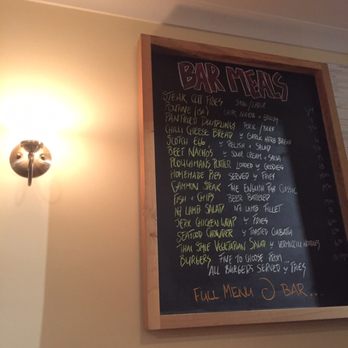 BAR MEALS
STEAK CUT FRIES
POUTINE
PANFRIED DUMPLINGS PORK / BEEF
CHILLI CHEESE BREAD GARLIC HERB BREAD
SCOTCH EGG RELISH + SALAD
BEEF NACHOS SOUR CREAM + SALSA
PLOUGHMANS PLATTER LOADED GOODIES
HOMEMADE PIES SERVED FRIES
GAMMON STEAK THE ENGLISH PUB CLASSIC
FISH + CHIPS BEER BATTERED
NZ LAMB SALAD NZ LAMB FILLET
JERK CHICKEN WRAP FRIES
SEAFOOD CHOWDER TOASTED CIABATTA
THAI STYLE VEGETARIAN SALAD VERMICELLI NOODLES
BURGERS FIVE TO CHOOSE FROM...
ALL BURGERS SERVED FRIES
FULL MENU @ BAR...